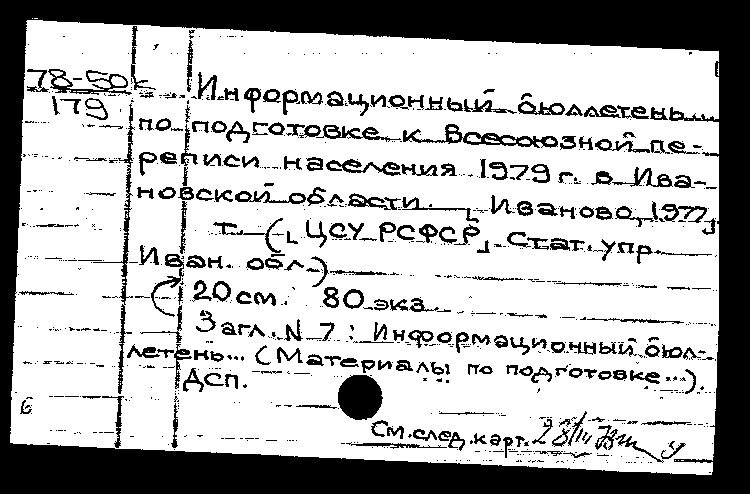 78-50к
179
Информационный бюллетень...
по подготовке к Всесоюзной пе-
реписи населения 1979 г. в Ива-
новской области. [Иваново, 1977]
т. ([ЦСУ РСФСР]. Стат. упр.
Иван. обл.)
20 см. 80 экз.
Загл. N 7: Информационный бюл-
летень... (Материалы по подготовке...).
ДСП.
6
См. след. карт.